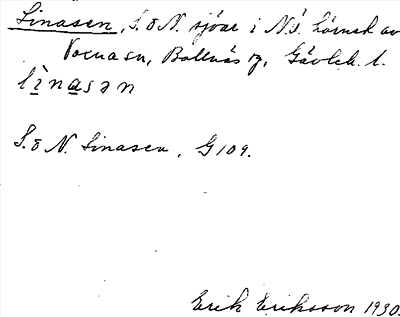 Linasen, S. o N. sjöar i N.ö. hörnet av
Voxnasn, Bollnäs sg, Gävleb. l.
lìnasən
S. o N. Linasen, G 109.
Erik Eriksson 1930.